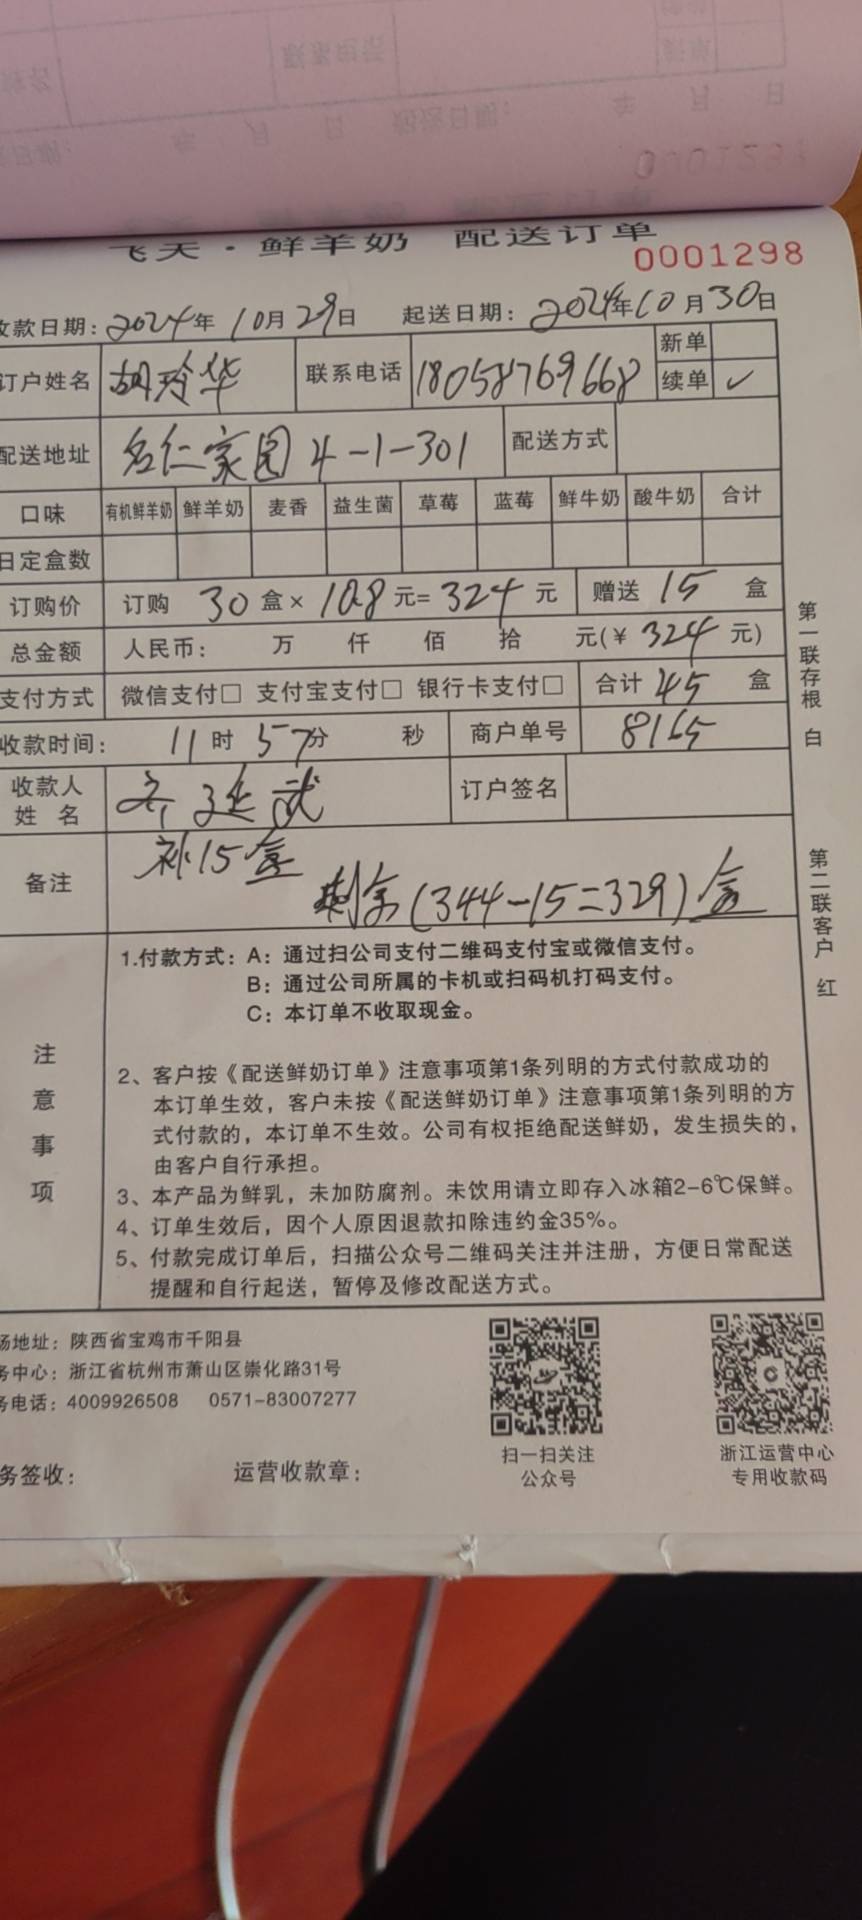 飞天·鲜羊奶 配送订单
0001298
收款日期：2024年10月29日 起送日期：2024年10月30日
订户姓名 胡玲华 联系电话 18058769668 新单
续单 ✓
配送地址 名仁家园4-1-301 配送方式
口味 有机鲜羊奶 鲜羊奶 麦香 益生菌 草莓 蓝莓 鲜牛奶 酸牛奶 合计
日定盒数
订购价 订购 30 盒× 10.8 元= 324 元 赠送 15 盒
总金额 人民币： 万 仟 佰 拾 元(¥ 324 元)
支付方式 微信支付□ 支付宝支付□ 银行卡支付□ 合计 45 盒
收款时间： 11时 57分 秒 商户单号 8165
收款人
姓 名 订户签名
备注 补15盒
剩余(344-15=329)盒
注意事项
1.付款方式：A：通过扫公司支付二维码支付宝或微信支付。
B：通过公司所属的卡机或扫码机打码支付。
C：本订单不收取现金。
2、客户按《配送鲜奶订单》注意事项第1条列明的方式付款成功的
本订单生效，客户未按《配送鲜奶订单》注意事项第1条列明的方
式付款的，本订单不生效。公司有权拒绝配送鲜奶，发生损失的，
由客户自行承担。
3、本产品为鲜乳，未加防腐剂。未饮用请立即存入冰箱2-6℃保鲜。
4、订单生效后，因个人原因退款扣除违约金35%。
5、付款完成订单后，扫描公众号二维码关注并注册，方便日常配送
提醒和自行起送，暂停及修改配送方式。
第一联存根 白
第二联客户 红
场地址：陕西省宝鸡市千阳县
务中心：浙江省杭州市萧山区崇化路31号
务电话：4009926508 0571-83007277
务签收： 运营收款章：
扫一扫关注
公众号
浙江运营中心
专用收款码